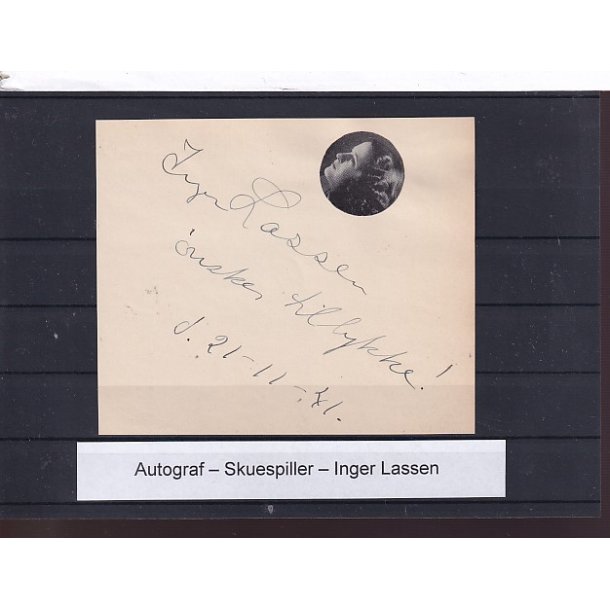 Inger Lassen
ønsker tillykke!
d. 21-11-41.
Autograf – Skuespiller – Inger Lassen